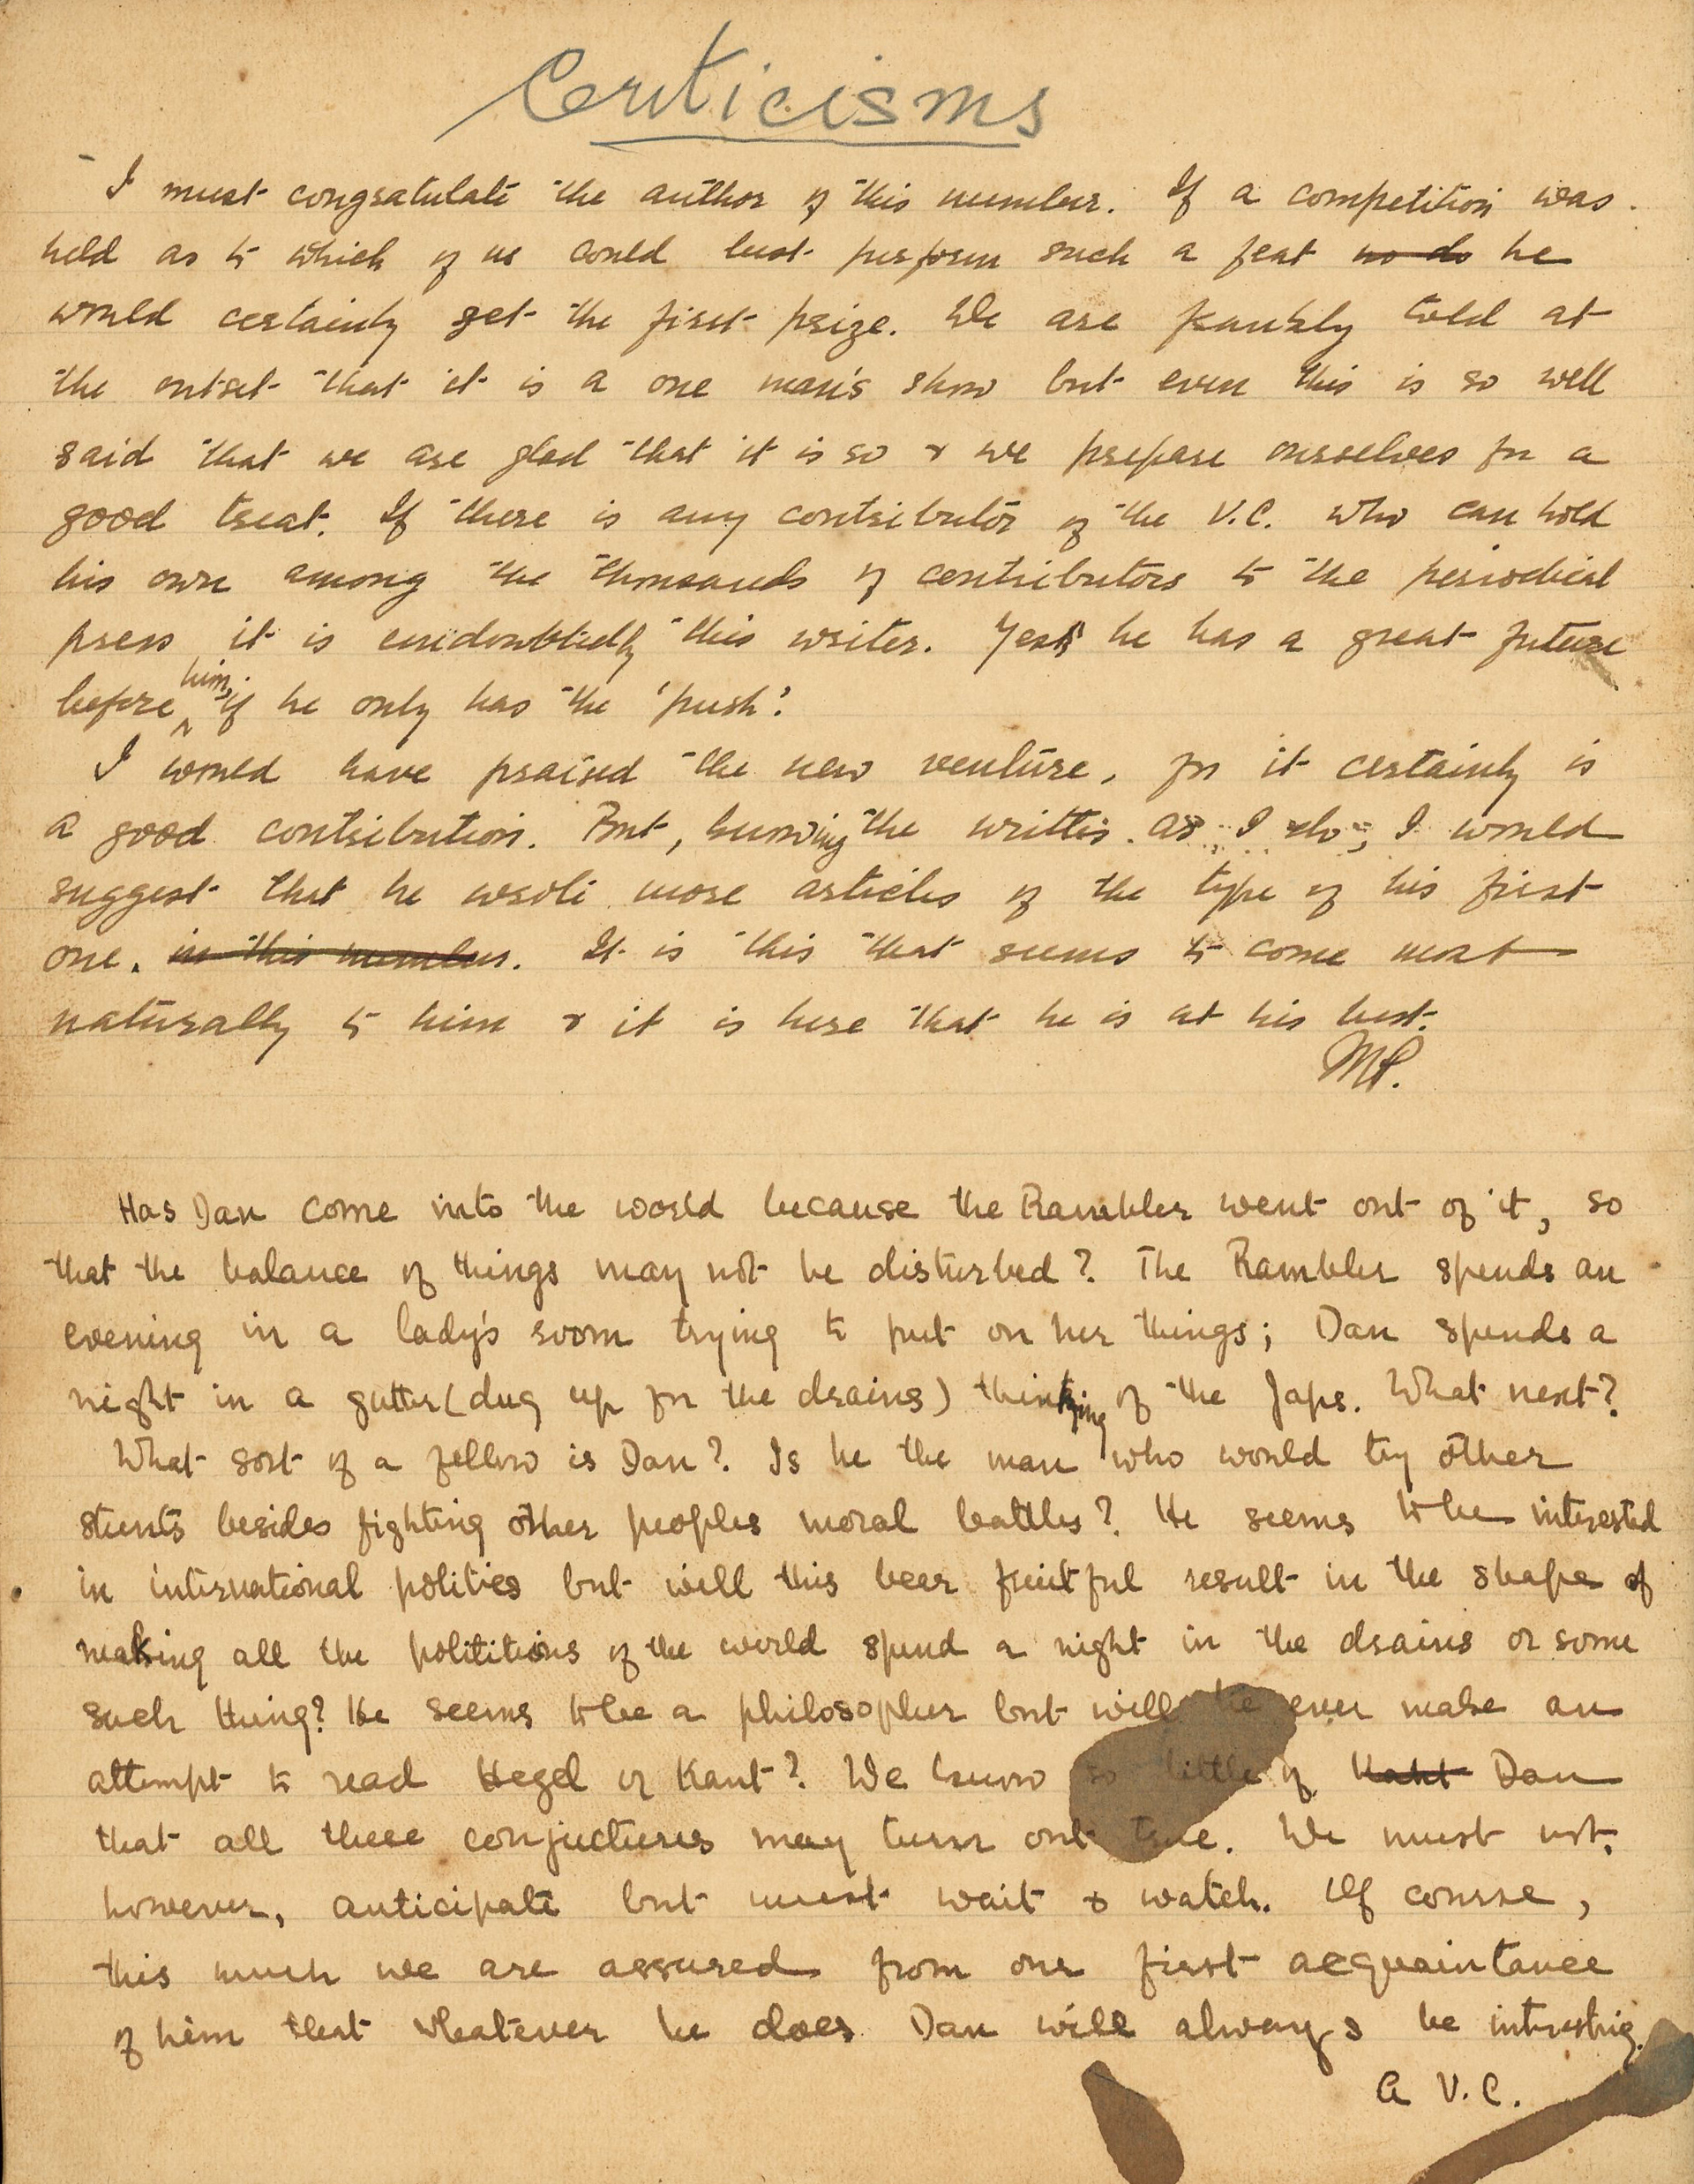 Criticisms
I must congratulate the author of this number. If a competition was
held as to which of us could best perform such a feat no do he
would certainly get the first prize. We are frankly told at
the outset that it is a one man's show but even this is so well
said that we are glad that it is so & we prepare ourselves for a
good treat. If there is any contributor of the V.C. who can hold
his own among the thousands of contributors to the periodical
press it is undoubtedly this writer. Yes he has a great future
before him, if he only has the 'push'.
I would have praised the new venture, for it certainly is
a good contribution. But, knowing the writer as I do, I would
suggest that he wrote more articles of the type of his first
one. in this number. It is this that seems to come most
naturally to him & it is here that he is at his best.
MP.
Has Dan come into the world because the Rambler went out of it, so
that the balance of things may not be disturbed? The Rambler spends an
evening in a lady's room trying to put on her things; Dan spends a
night in a gutter (dug up for the drains) thinking of the Japs. What next?
What sort of a fellow is Dan? Is he the man who would try other
stunts besides fighting other peoples moral battles? He seems to be interested
in international politics but will this bear fruitful result in the shape of
making all the polititions of the world spend a night in the drains or some
such thing? He seems to be a philosopher but will he ever make an
attempt to read Hegel or Kant? We know so little of Kant Dan
that all these conjectures may turn out true. We must not,
however, anticipate but must wait & watch. Of course,
this much we are assured from our first acquaintance
of him that whatever he does Dan will always be interesting.
A V.C.